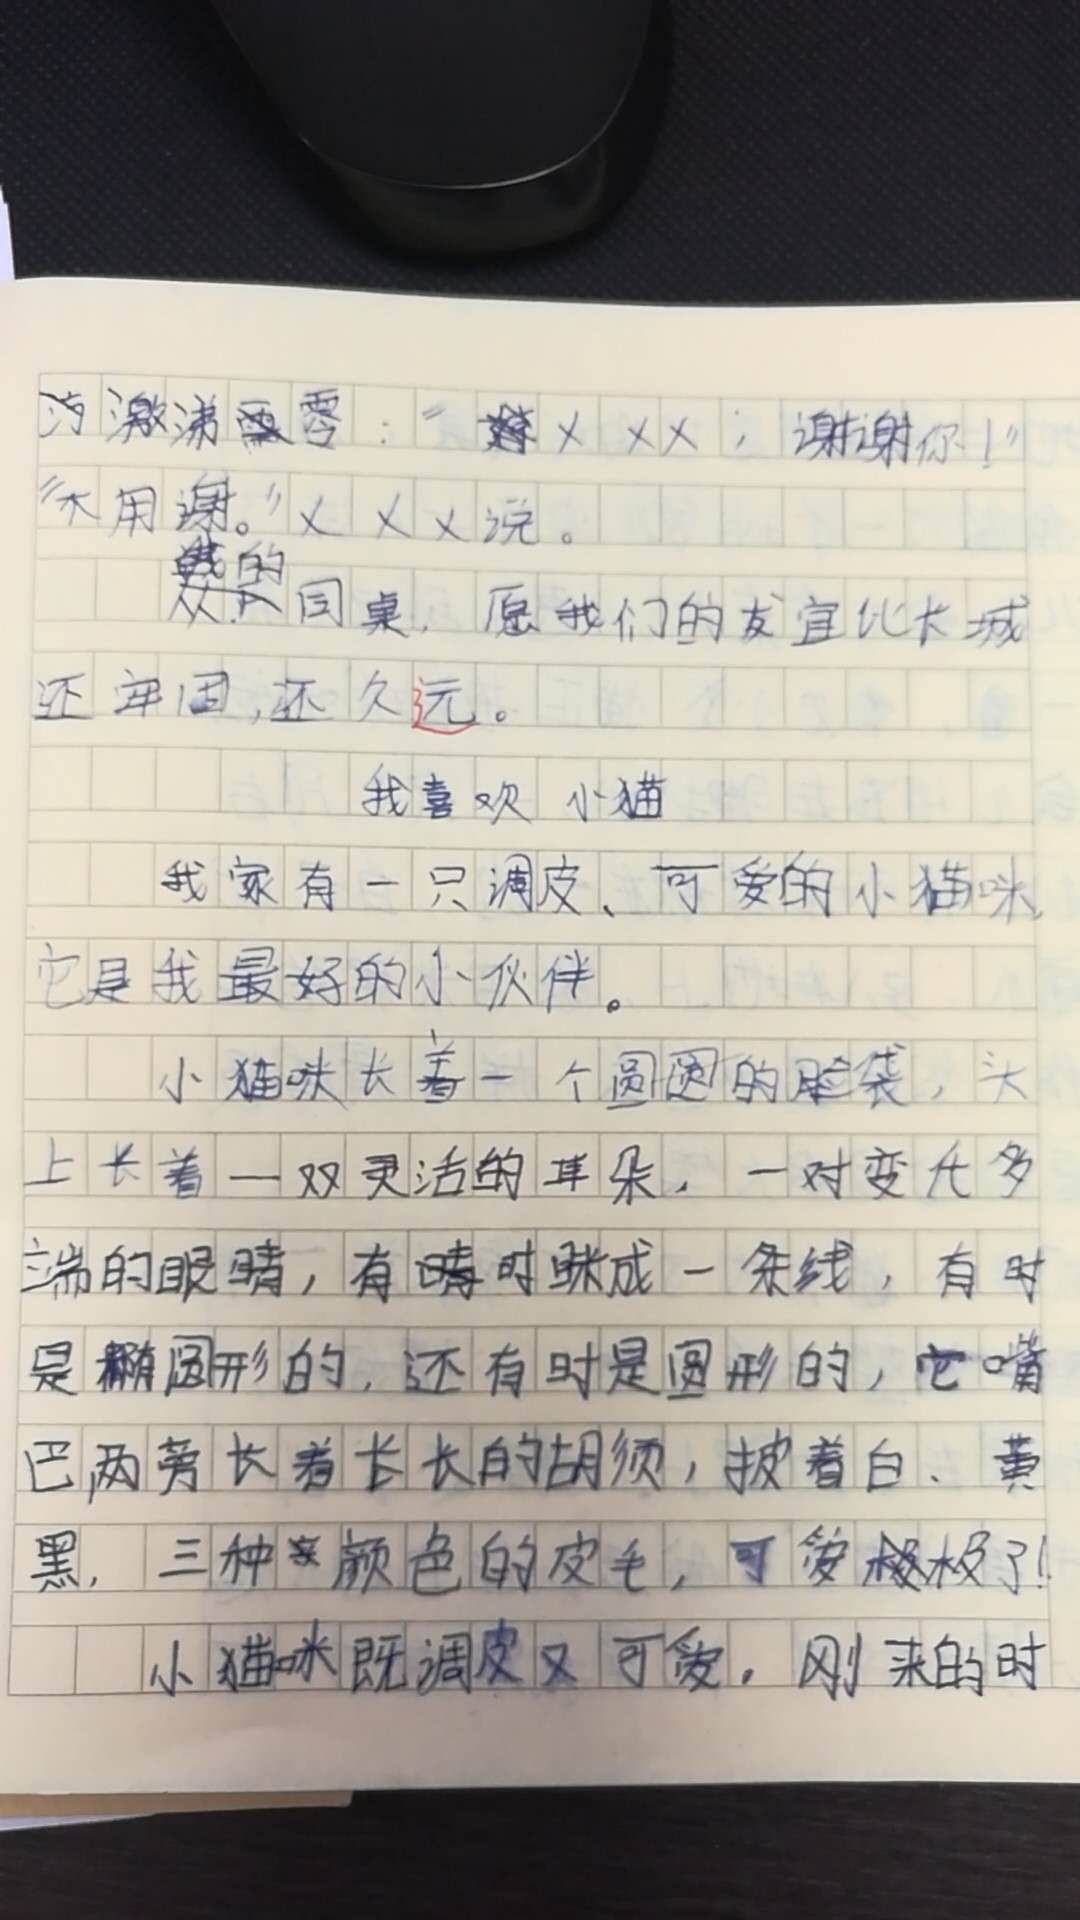 激涕零：“×××，谢谢你！”
“不用谢。”×××说。
我的
同桌，愿我们的友宜比长城
还牢固，还久远。
我喜欢小猫
我家有一只调皮、可爱的小猫咪，
它是我最好的小伙伴。
小猫咪长着一个圆圆的脸袋，头
上长着一双灵活的耳朵，一对变化多
端的眼睛，有时眯成一条线，有时
是椭圆形的，还有时是圆形的，它嘴
巴两旁长着长长的胡须，披着白、黄
黑，三种颜色的皮毛，可爱极了！
小猫咪既调皮又可爱，刚来的时